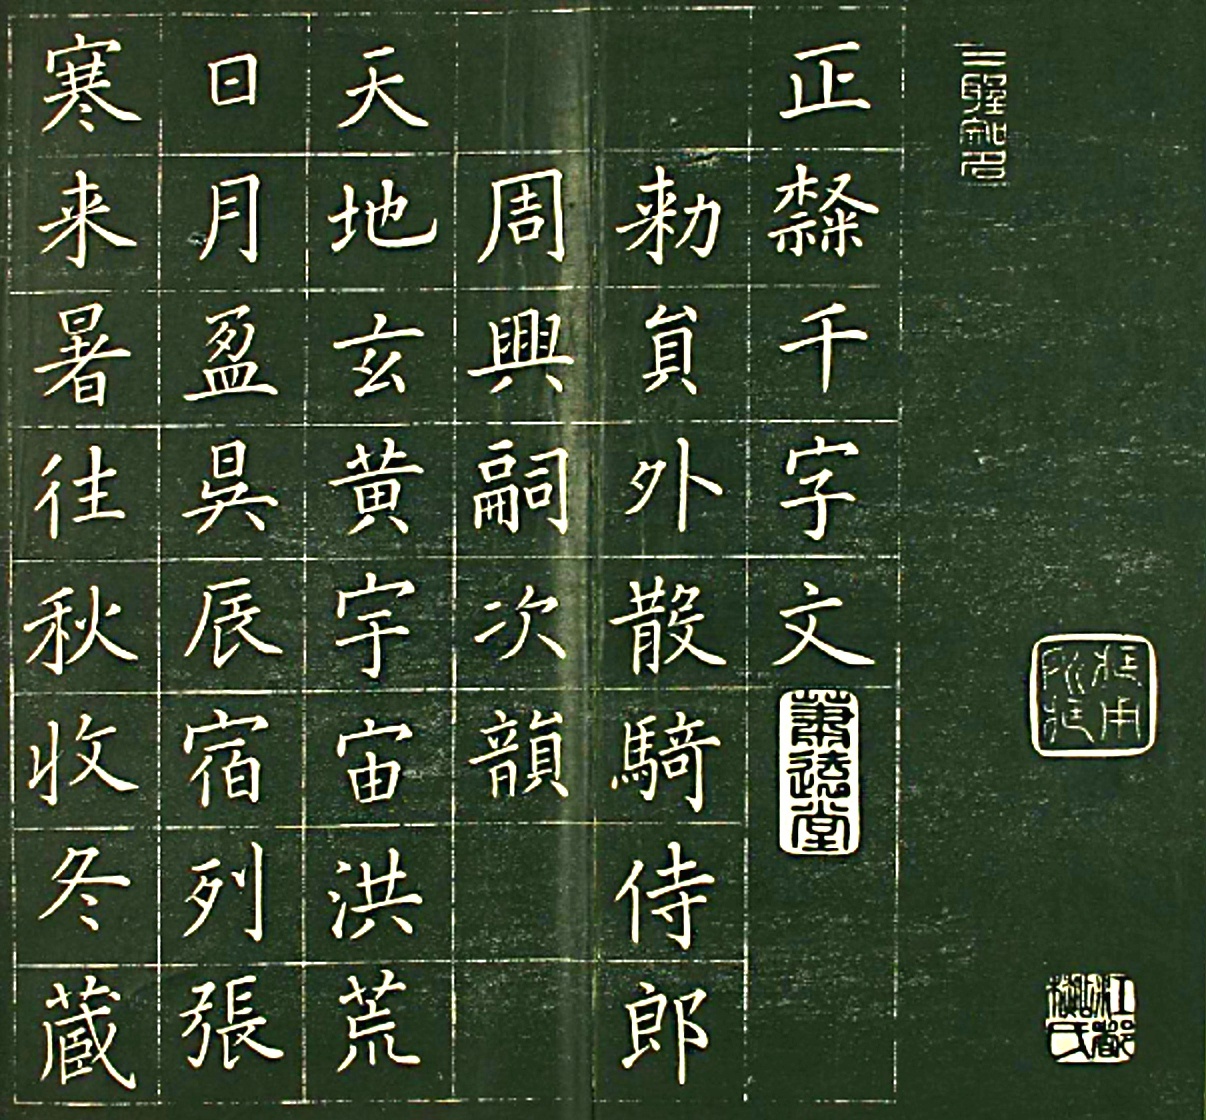 正隸千字文
勑貟外散騎侍郎
周興嗣次韻
天地玄黄宇宙洪荒
日月盈昃辰宿列張
寒来暑往秋收冬蔵